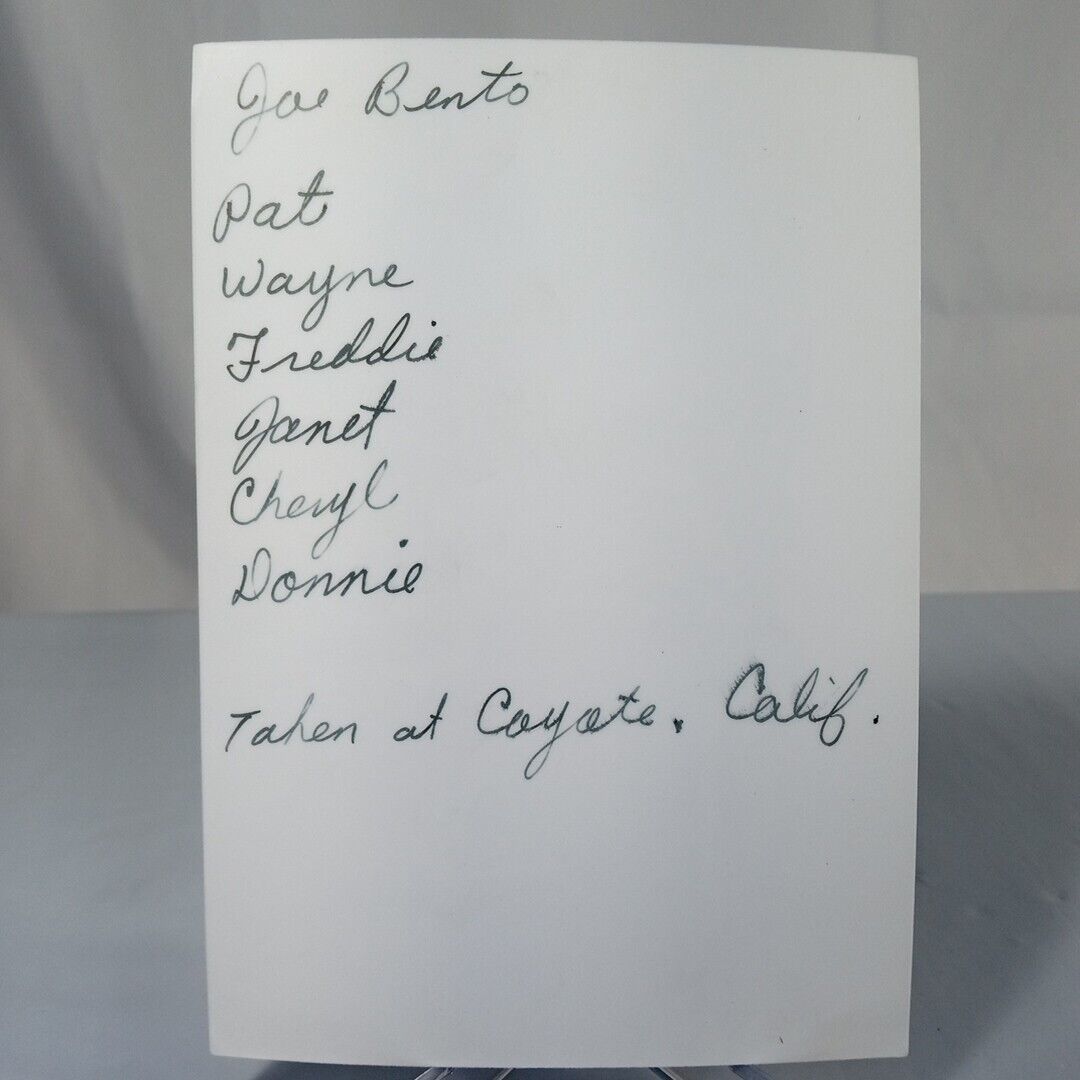 Joe Bento
Pat
Wayne
Freddie
Janet
Cheryl
Donnie
Taken at Coyote. Calif.